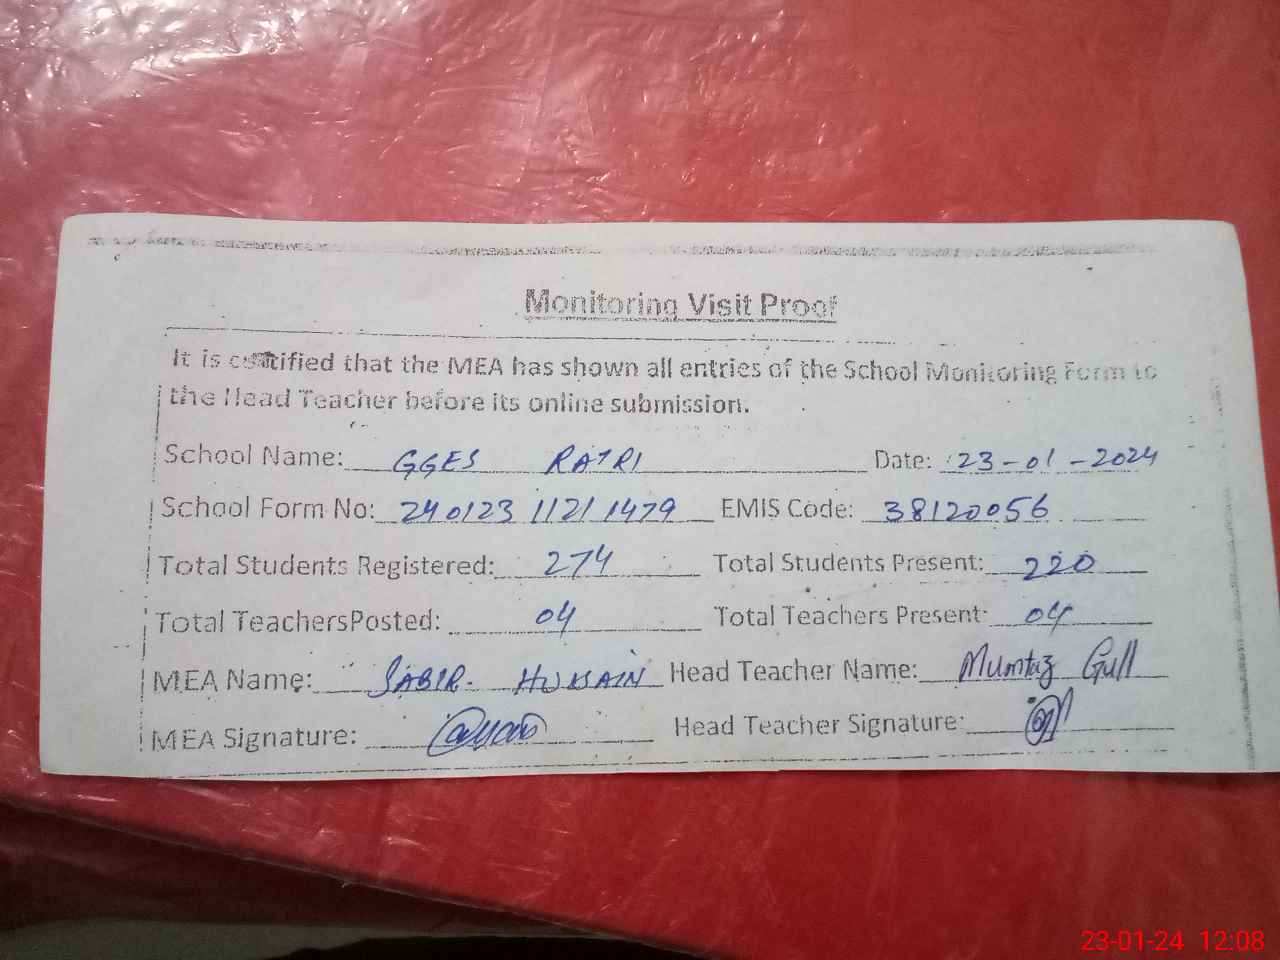 Monitoring Visit Proof
It is certified that the MEA has shown all entries of the School Monitoring Form to
the Head Teacher before its online submission.
School Name: GGES RATRI Date: 23-01-2024
School Form No: 240123 1121 1479 EMIS Code: 38120056
Total Students Registered: 274 Total Students Present: 220
Total TeachersPosted: 04 Total Teachers Present: 04
MEA Name: SABIR. HUSSAIN Head Teacher Name: Mumtaz Gull
MEA Signature: Head Teacher Signature:
23-01-24 12:08